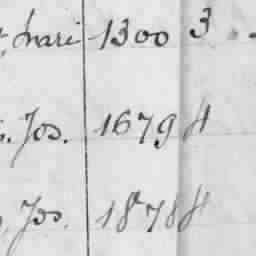 hari 1300 3
s. Jos. 1679 4
Jos. 1878 4